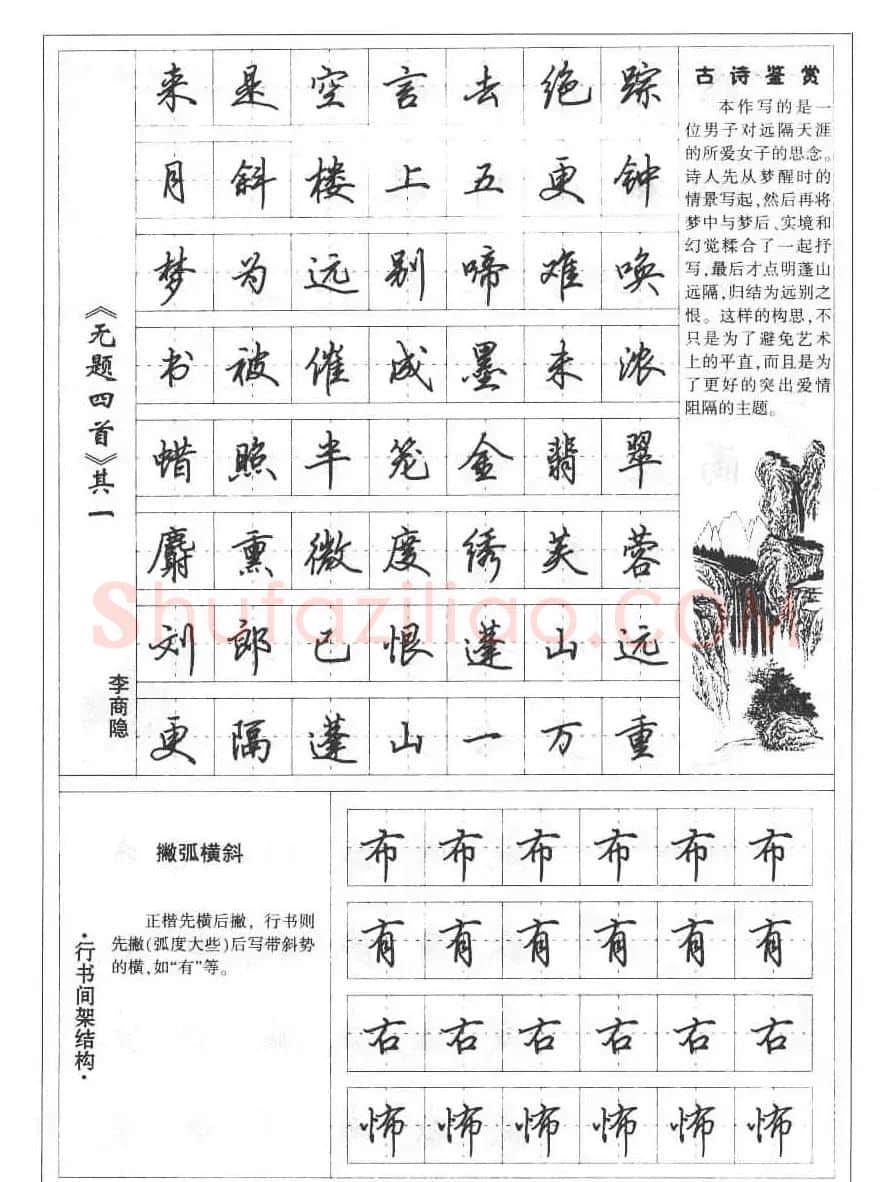 《无题四首》其一
李商隐
来是空言去绝踪
月斜楼上五更钟
梦为远别啼难唤
书被催成墨未浓
蜡照半笼金翡翠
麝熏微度绣芙蓉
刘郎已恨蓬山远
更隔蓬山一万重
古诗鉴赏
本作写的是一
位男子对远隔天涯
的所爱女子的思念。
诗人先从梦醒时的
情景写起,然后再将
梦中与梦后、实境和
幻觉糅合了一起抒
写,最后才点明蓬山
远隔,归结为远别之
恨。这样的构思,不
只是为了避免艺术
上的平直,而且是为
了更好的突出爱情
阻隔的主题。
Shufaziliao.com
·行书间架结构·
撇弧横斜
正楷先横后撇，行书则
先撇(弧度大些)后写带斜势
的横,如“有”等。
布布布布布布
有有有有有有
右右右右右右
怖怖怖怖怖怖